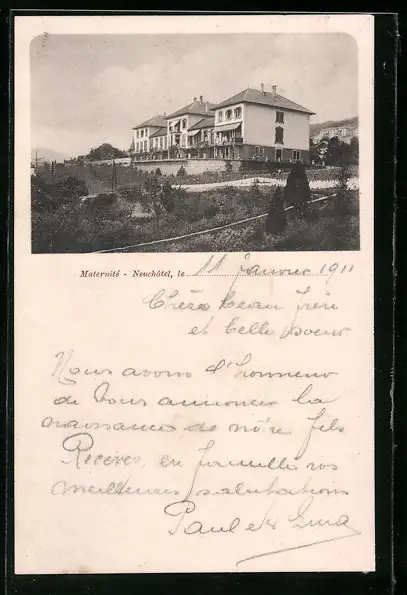 Maternité - Neuchâtel, le 11 janvier 1911
Chers beau frère
et belle soeur
Nous avons d'honneur
de vous annoncer la
naissance de notre fils
Recevez, en famille nos
meilleures salutations
Paul et Lina